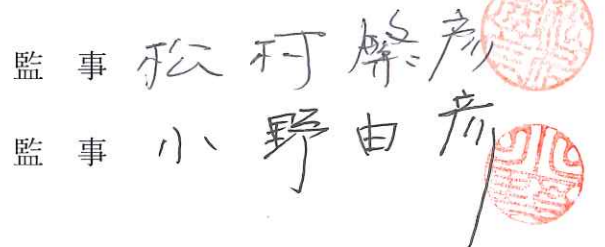 監事 松村 彦
監事 小野由彦